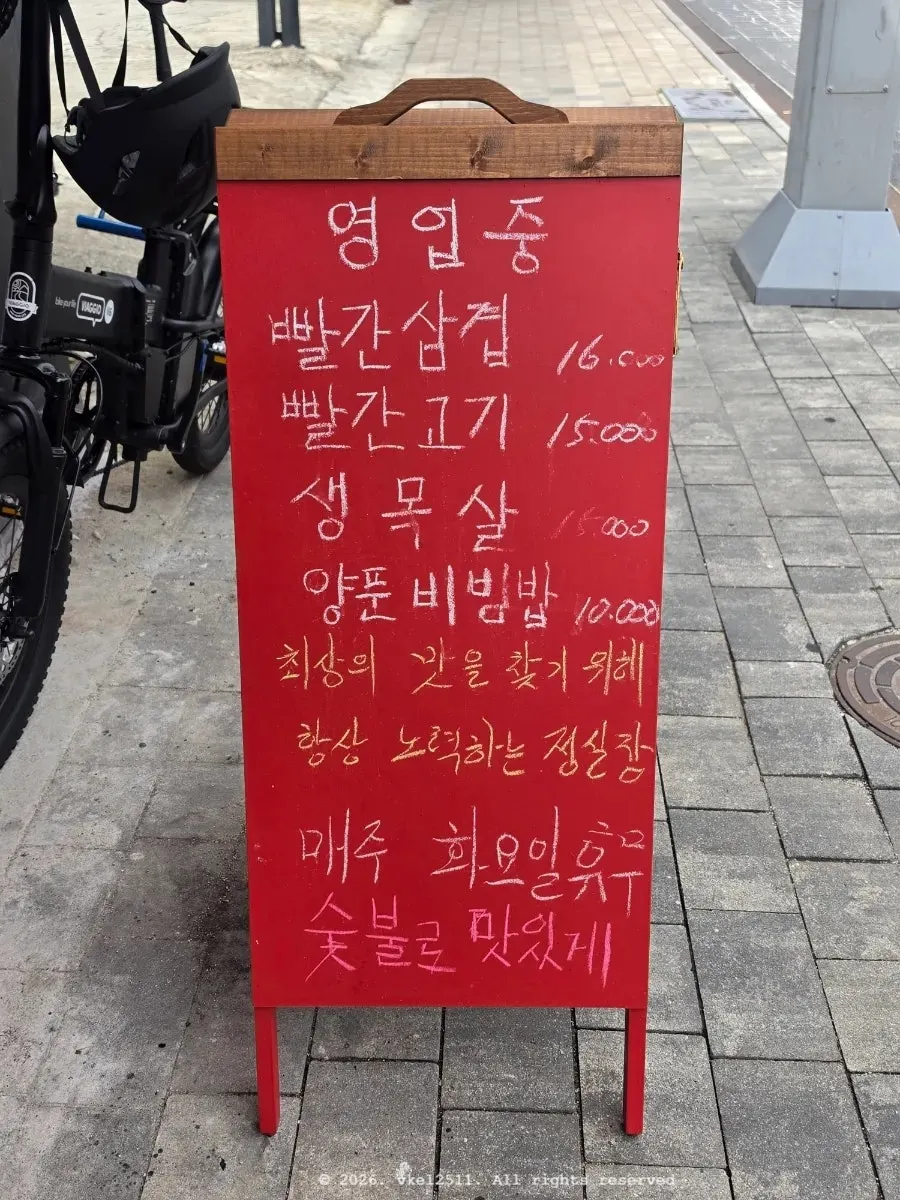 영업중
빨간삼겹 16.000
빨간고기 15.000
생목살 15.000
양푼비빔밥 10.000
최상의 맛을 찾기 위해
항상 노력하는 정실장
매주 화요일휴무
숯불로 맛있게
bike your life VIAGGIO
VIAGGIO
© 2026. vke12511. All rights reserved